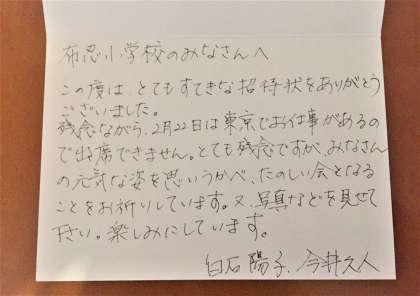 布忍小学校のみなさんへ
この度は、とてもすてきな招待状をありがとう
ございました。
残念ながら、2月22日は東京でお仕事があるの
で出席できません。とても残念ですが、みなさん
の元気な姿を思いうかべ、たのしい会となる
ことをお祈りしています。又、写真などを見せて
下さい。楽しみにしています。
白石陽子、今井久人